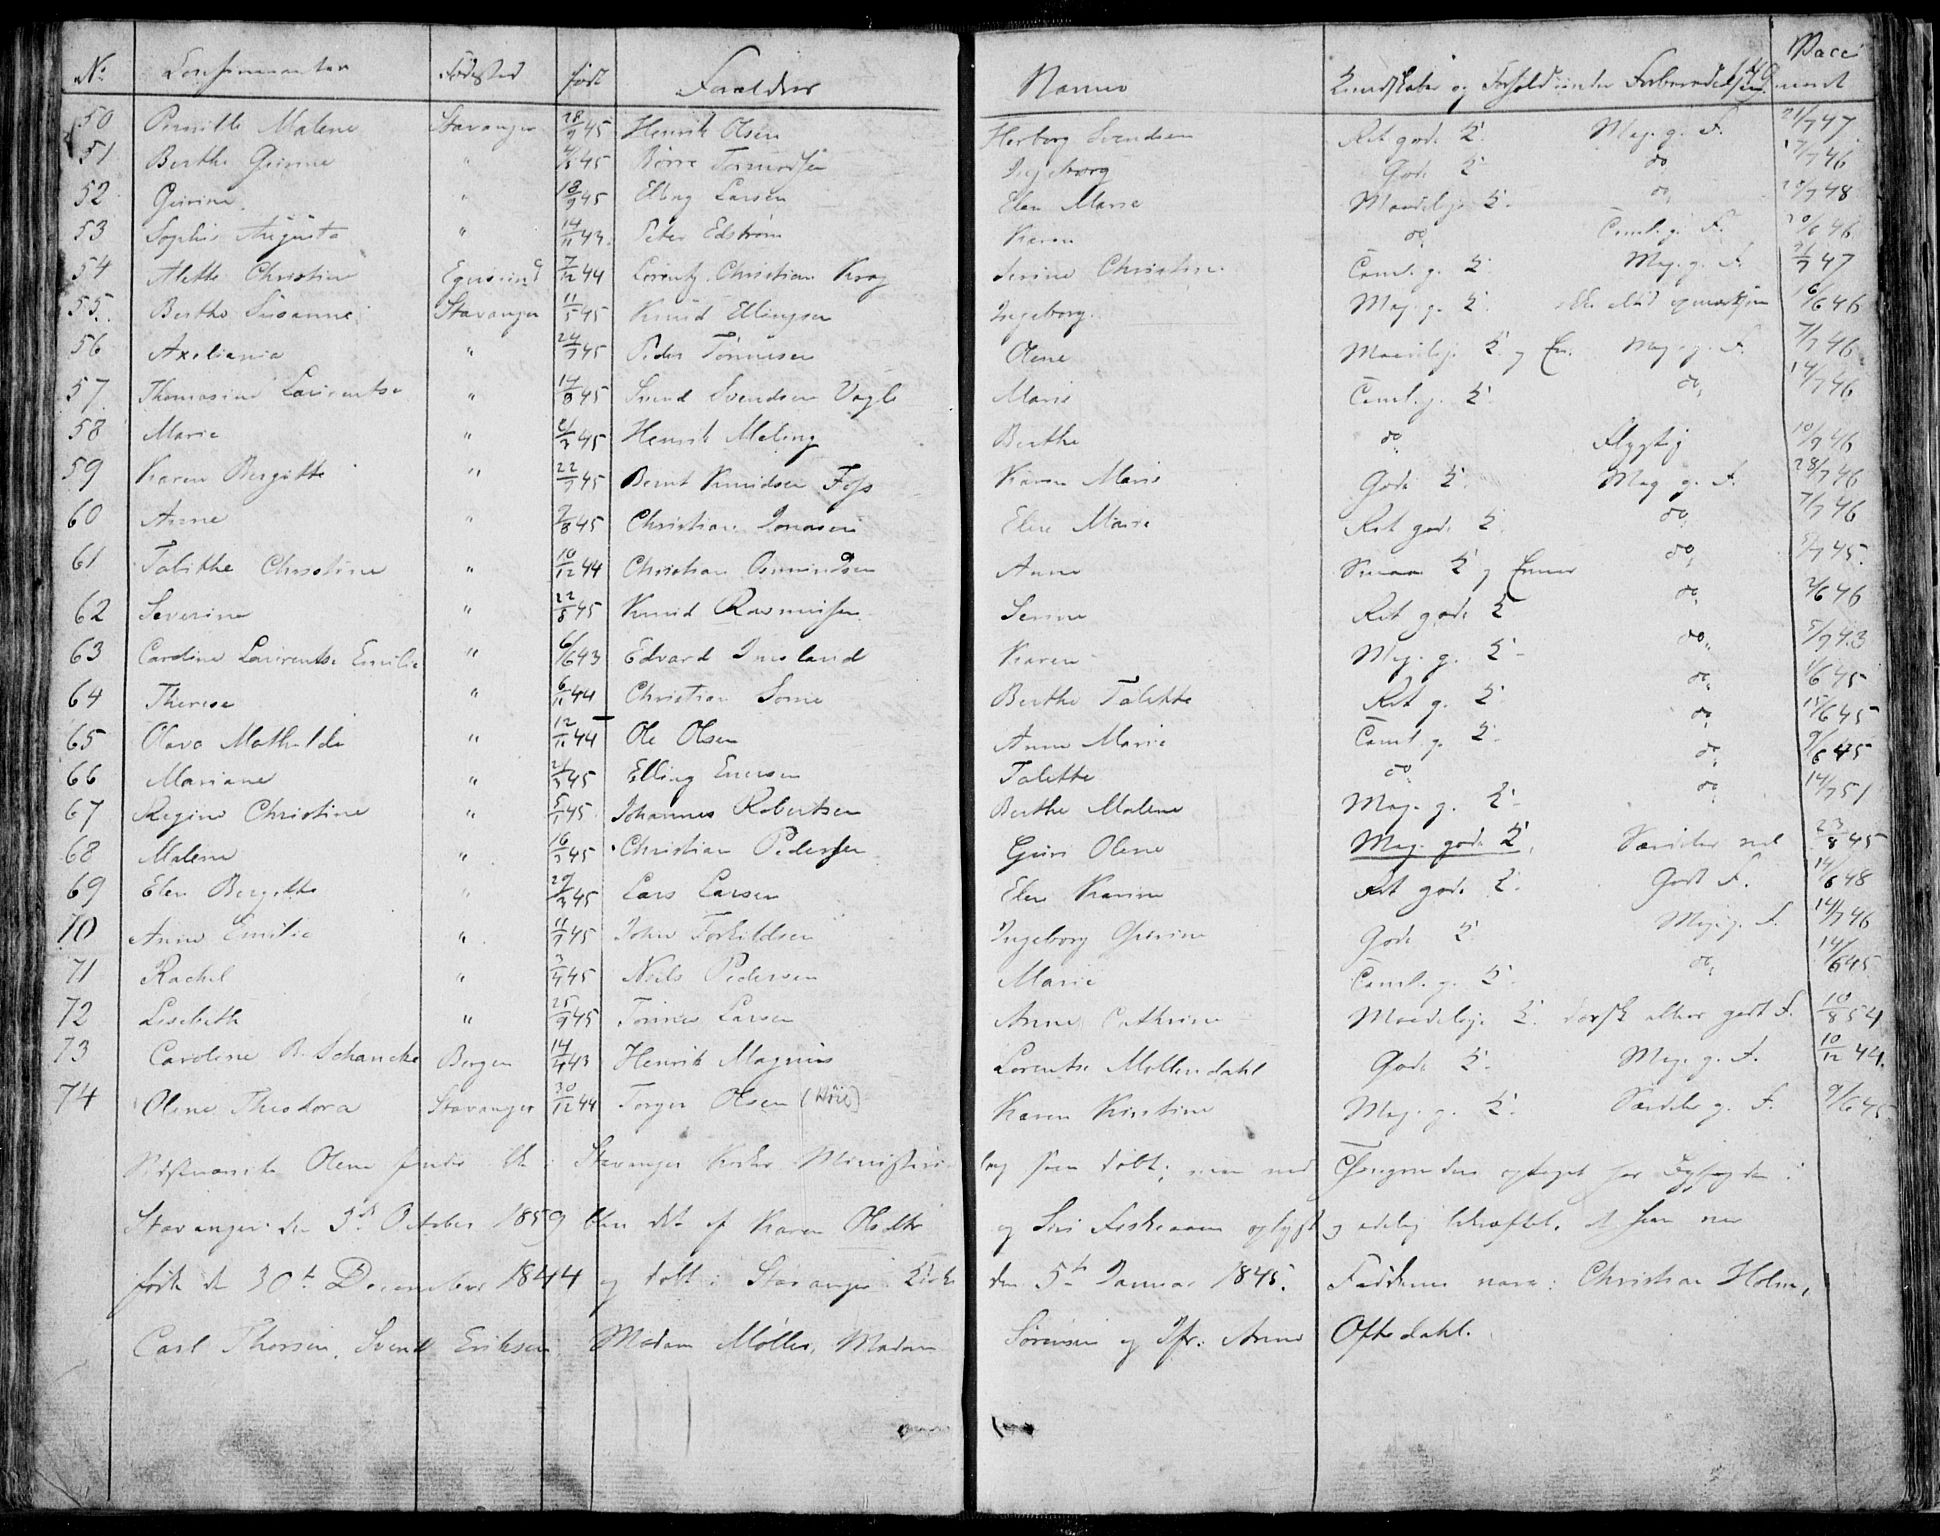 No Confirmanter Fødested født Forældres Navne Kundskaber og Forhold under Forberedelsen Vacc
50 Pernille Malene Stavanger 28/9 45 Henrik Olsen Herborg Svendsen Ret gode K. Meg. g. F. 21/7 47
51 Berthe Gurine " 45 Børre Tormodsen Ingeborg Gode K do 17/7 46
52 Gurine " 18/9 45 Elling Larsen Elen Marie Maadelige K. do 28/7 48
53 Sophie Augusta " 14/11 43 Peter Edstrøm Karen do Teml. g. F. 20/6 46
54 Alette Christine Egersund 7/12 44 Lorentz Christian Krog Serine Christine Teml. g. K Meg. g. F. 2/7 47
55 Berthe Susanne Stavanger 11/5 45 Knud Ellingsen Ingeborg Meg. g. K. 16/6 46
56 Axeliania " 24/7 45 Peder Tønnesen Olene Maadelige K. og Ev. Meg. g. F. 7/7 46
57 Thomasine Laurentse " 17/8 45 Svend Svendsen Vagle Marie Teml. g. K. do 14/7 46
58 Marie " 21/3 45 Henrik Meling Berthe do Flygtig 10/9 46
59 Karen Bergitte " 22/7 45 Bernt Knudsen Foss Karen Marie Gode K. Meg. g. F. 28/7 46
60 Anne " 2/8 45 Christian Jonasen Elen Marie Ret gode K. do 7/7 46
61 Talithe Christine " 10/12 44 Christian Omundsen Anne Smaa K og Evner do 5/7 45.
62 Severine " 22/8 45 Knud Rasmussen Serine Ret gode K do 2/6 46
63 Caroline Laurentse Emilie " 6/6 43 Edvard Imsland Karen Meg. g. K do 5/7 43
64 Therese " 6/11 44 Christian Some Berthe Talette Ret g. K do 1/6 45
65 Olava Mathilde " 12/11 44 Ole Olsen Anne Marie Teml g. K do 15/6 45
66 Mariane " 21/3 45 Elling Enersen Talette do do 9/6 45
67 Regine Christine " 5/1 45 Johannes Robertsen Berthe Malene Meg. g. K do 14/7 51
68 Malene " 16/3 45 Christian Pedersen Guri Olene Meg. gode K. Særdeles vel 23/8 45
69 Elen Bergitte " 29/3 45 Lars Larsen Elen Karine Ret gode K. Godt F. 14/6 48
70 Anne Emilie " 11/7 45 John Torkildsen Ingeborg Gurine Gode K. Meg. g. F. 14/7 46
71 Rachel " 3/4 45 Niels Pedersen Marie Teml. g. K. do 14/6 45
72 Lisebeth " 25/9 45 Tønnes Larsen Anne Cathrine Maadelige K. dorsk ellers godt F. 10/8 54
73 Caroline B. Schancke Bergen 14/4 43 Henrik Magnus Lorentse Mollendahl Gode K. Meg. g. F. 10/12 44.
74 Olene Theodora Stavanger 30/12 44 Torger Olsen (Høie) Karen Kirstine Meg. g. K. Særdeles g. F. 9/6 45
Sidstnævnte Olene findes ikke i Stavanger Kirkes Ministerial- bog som døbt; men ved
Stavanger den 3die October 1859 blev det af Karen og Siri oplyst og edelig bekræftet, at hun var
født den 30te December 1844 og døbt i Stavanger Kirke den 5te Januar 1845. Fadderne vare: Christian Holm,
Carl Thorsen, Svend Eriksen, Madam Møller, Madam Sørensen og Jfr. Anne Oftedahl.